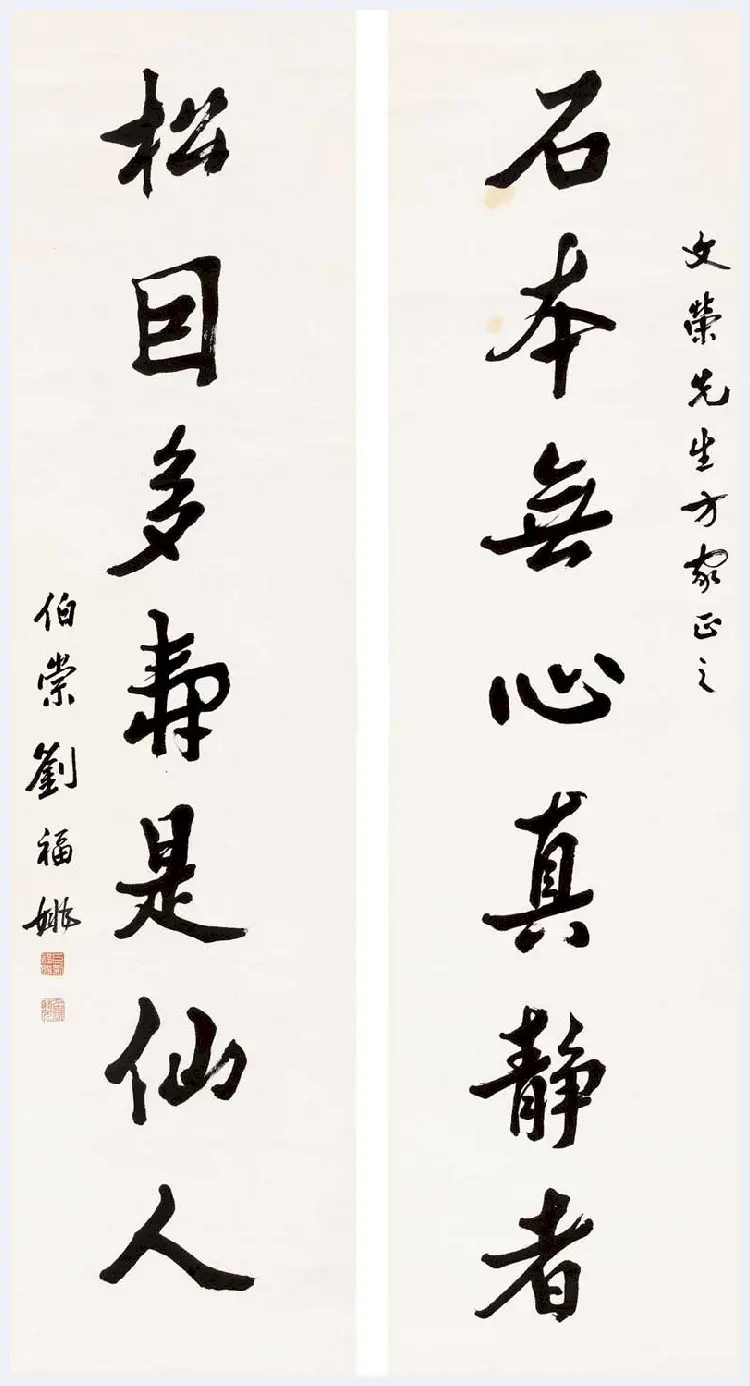 文榮先生方家正之
石本無心真静者
松囙多壽是仙人
伯崇劉福姚